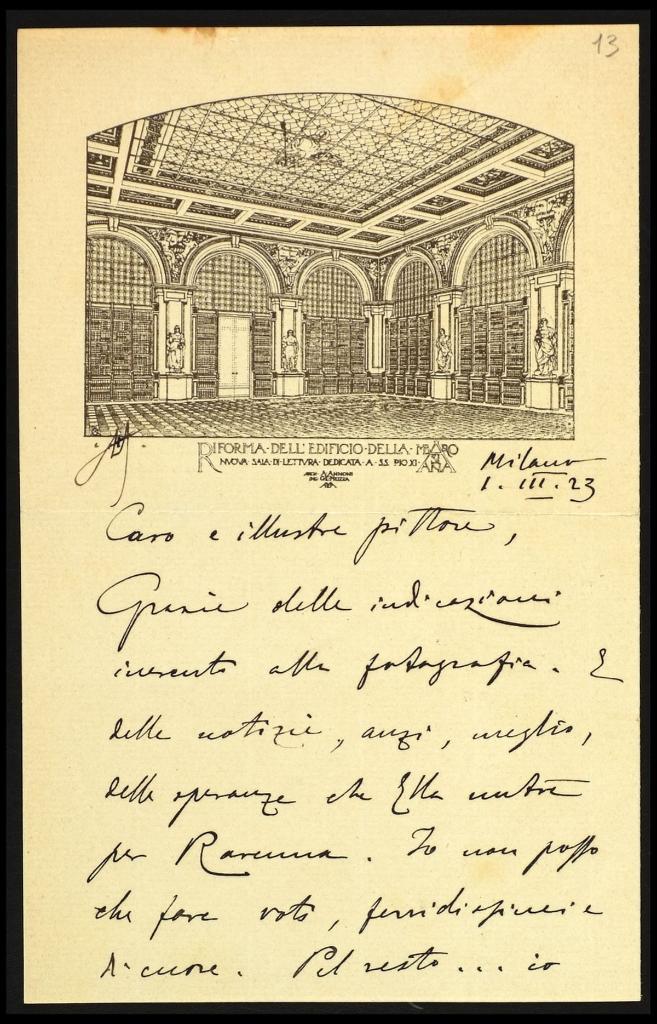 13
RIFORMA·DELL'EDIFICIO·DELLA·
NVOVA·SALA·DI·LETTVRA·DEDICATA·A·SS·PIO XI
ARCH. A. ANNONI
Milano
1. III. 23
Caro e illustre pittore,
Grazie delle indicazioni
inerenti alla fotografia. E
delle notizie, anzi, meglio,
delle speranze che Ella nutre
per Ravenna. Io non posso
che fare voti, fervidissimi e
di cuore. Pel resto... io